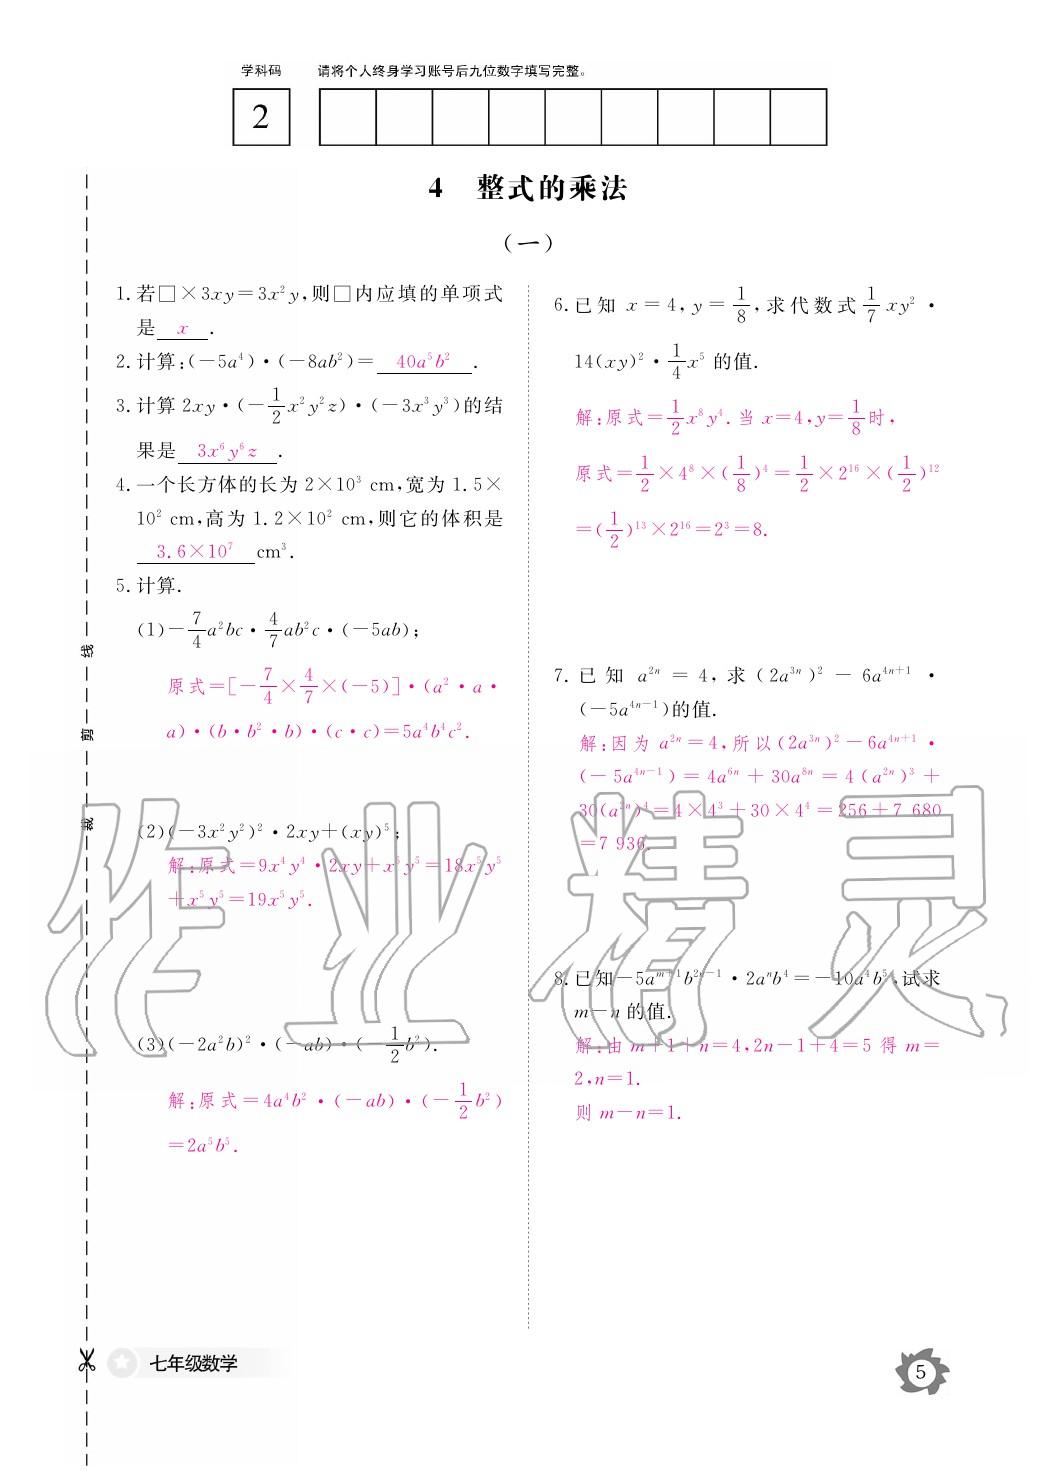 学科码 请将个人终身学习账号后九位数字填写完整。
2
4 整式的乘法
(一)
1. 若□×3xy=3x²y,则□内应填的单项式
是 x .
2. 计算:(-5a⁴)·(-8ab²)= 40a⁵b² .
3. 计算 2xy·(-1/2x²y²z)·(-3x³y³)的结
果是 3x⁶y⁶z .
4. 一个长方体的长为 2×10³ cm,宽为 1.5×
10² cm,高为 1.2×10² cm,则它的体积是
3.6×10⁷ cm³.
5. 计算.
(1)-7/4a²bc·4/7ab²c·(-5ab);
原式=[-7/4×4/7×(-5)]·(a²·a·
a)·(b·b²·b)·(c·c)=5a⁴b⁴c².
(2)(-3x²y²)²·2xy+(xy)⁵;
解:原式=9x⁴y⁴·2xy+x⁵y⁵=18x⁵y⁵
+x⁵y⁵=19x⁵y⁵.
(3)(-2a²b)²·(-ab)·(-1/2b²).
解:原式=4a⁴b²·(-ab)·(-1/2b²)
=2a⁵b⁵.
6. 已知 x=4,y=1/8,求代数式1/7xy²·
14(xy)²·1/4x⁵ 的值.
解:原式=1/2x⁸y⁴.当 x=4,y=1/8时,
原式=1/2×4⁸×(1/8)⁴=1/2×2¹⁶×(1/2)¹²
=(1/2)¹³×2¹⁶=2³=8.
7. 已知 a²ⁿ=4,求(2a³ⁿ)²-6a⁴ⁿ⁺¹·
(-5a⁴ⁿ⁻¹)的值.
解:因为 a²ⁿ=4,所以(2a³ⁿ)²-6a⁴ⁿ⁺¹·
(-5a⁴ⁿ⁻¹)=4a⁶ⁿ+30a⁸ⁿ=4(a²ⁿ)³+
30(a²ⁿ)⁴=4×4³+30×4⁴=256+7 680
=7 936.
8. 已知-5aᵐ⁺¹b²ⁿ⁻¹·2aⁿb⁴=-10a⁴b⁵,试求
m-n 的值.
解:由 m+1+n=4,2n-1+4=5 得 m=
2,n=1.
则 m-n=1.
线
剪
裁
作业精灵
七年级数学
5